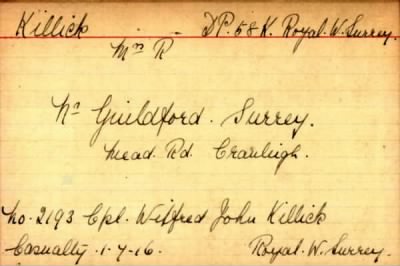 Killick D.P. 58 K. Royal. W. Surrey.
Mrs R
Nr Guildford. Surrey.
Mead. Rd. Cranleigh.
No. 2193 Cpl. Wilfred John Killick
Casualty. 1-7-16. Royal. W. Surrey.